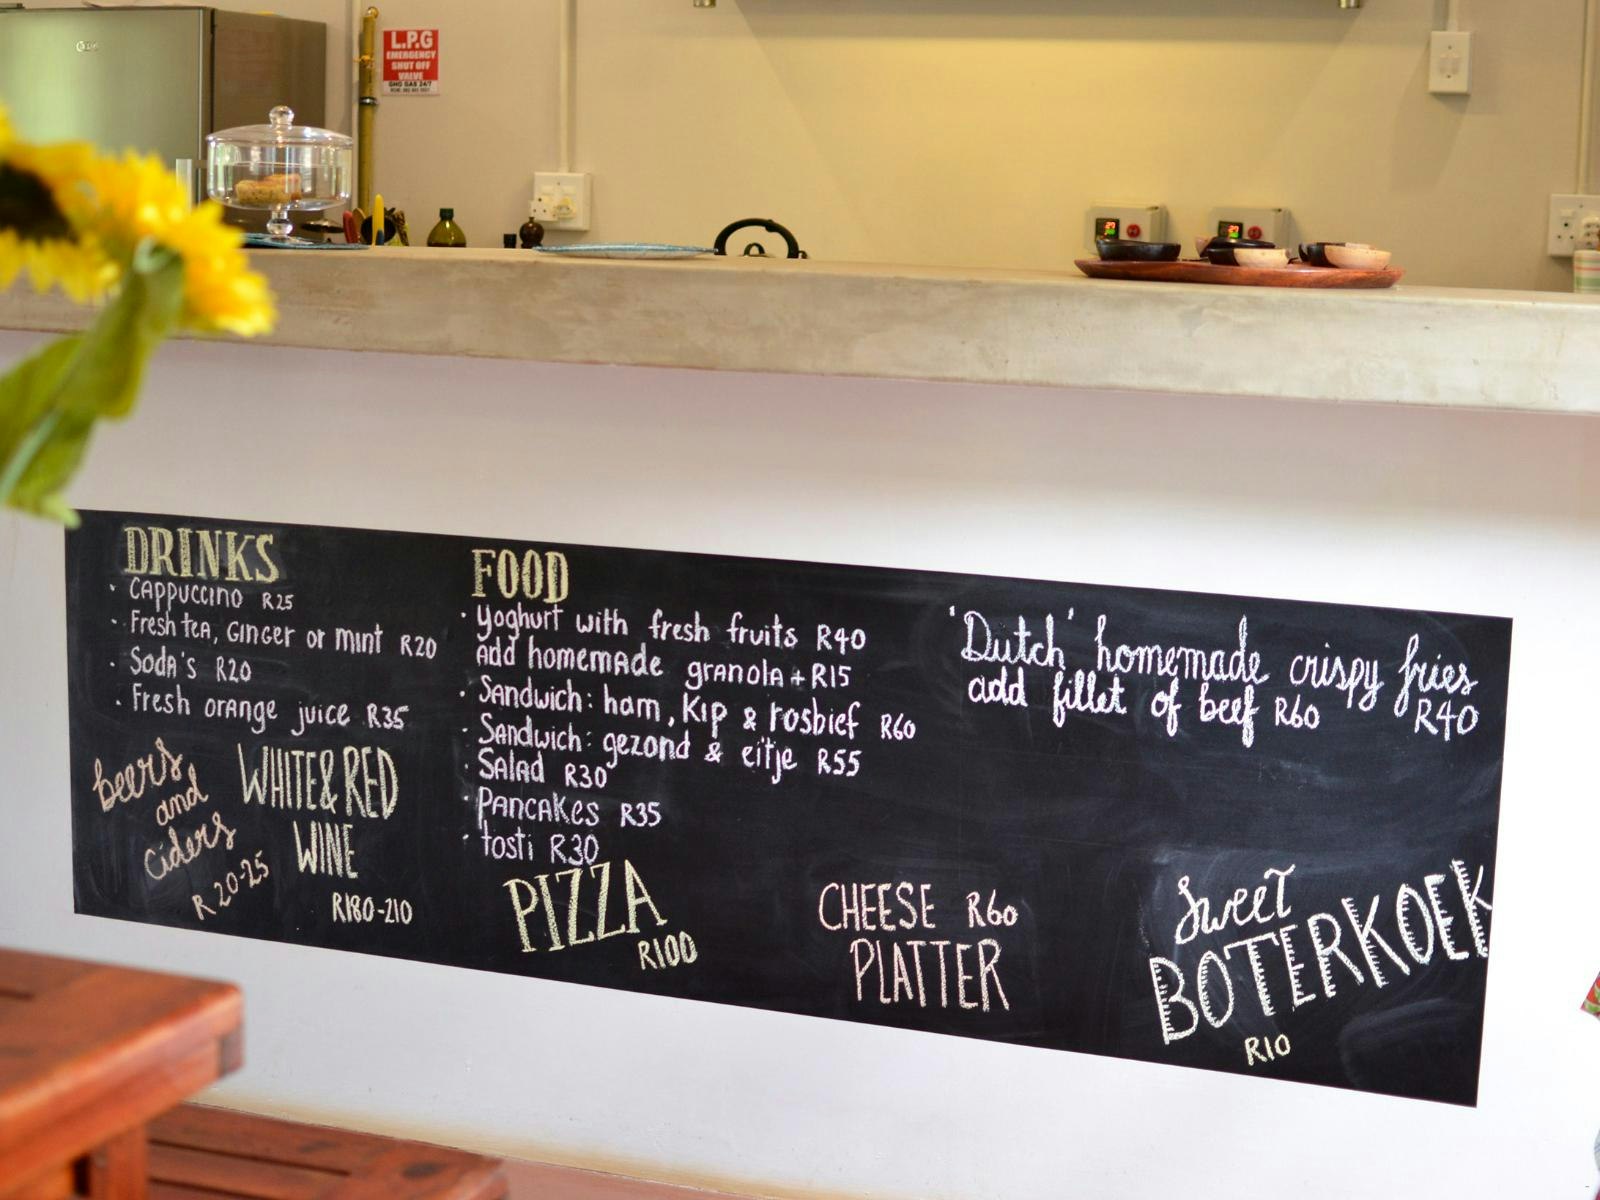 L.P.G
EMERGENCY
SHUT OFF
VALVE
DRINKS
· CAPPUCCINO R25
· Fresh tea, GINGER or mint R20
· Soda's R20
· Fresh orange juice R35
beers
and
ciders
R 20-25
WHITE & RED
WINE
R180-210
FOOD
· Yoghurt with fresh fruits R40
add homemade granola + R15
· Sandwich: ham, kip & rosbief R60
· Sandwich: gezond & eitje R55
· Salad R30
· Pancakes R35
· tosti R30
PIZZA
R100
'Dutch' homemade crispy fries
R40
add fillet of beef R60
CHEESE R60
PLATTER
Sweet
BOTERKOEK
R10